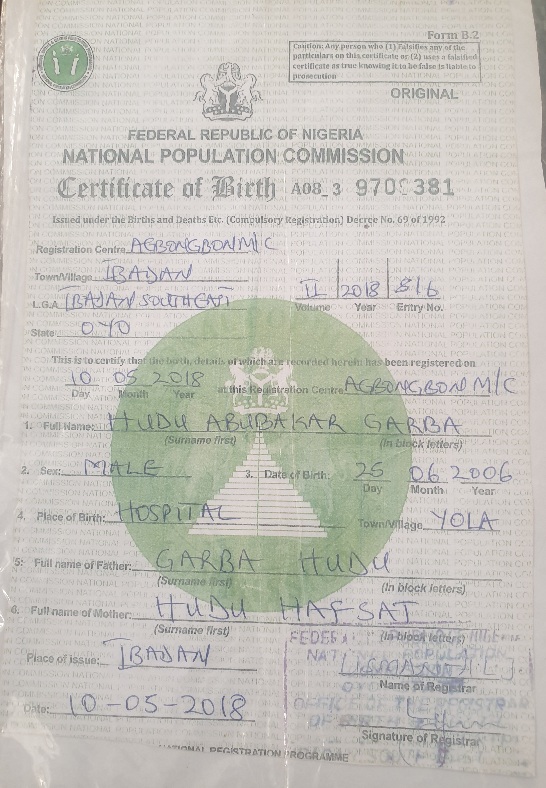 Form B.2
Caution: Any person who (1) Falsifies any of the
particulars on this certificate or (2) uses a falsified
certificate as true knowing it to be false is liable to
prosecution
ORIGINAL
FEDERAL REPUBLIC OF NIGERIA
NATIONAL POPULATION COMMISSION
Certificate of Birth A08_3 970 381
Issued under the Births and Deaths Etc. (Compulsory Registration) Decree No. 69 of 1992
Registration Centre AGBONGBON M/C
Town/Village IBADAN
L.G.A IBADAN SOUTHEAST
II 2018 816
Volume Year Entry No.
State OYO
This is to certify that the birth, details of which are recorded herein has been registered on
10 05 2018 at this Registration Centre AGBONGBON M/C
Day Month Year
1. Full Name: HUDU ABUBAKAR GARBA
(Surname first) (In block letters)
2. Sex: MALE 3. Date of Birth: 25 06 2006
Day Month Year
4. Place of Birth: HOSPITAL Town/Village YOLA
5: Full name of Father: GARBA HUDU
(Surname first) (In block letters)
6. Full name of Mother: HUDU HAFSAT
(Surname first) (In block letters)
Place of issue: IBADAN
Name of Registrar
Date: 10-05-2018
OFFICE OF THE REGISTRAR
OF BIRTH
Signature of Registrar
NATIONAL REGISTRATION PROGRAMME